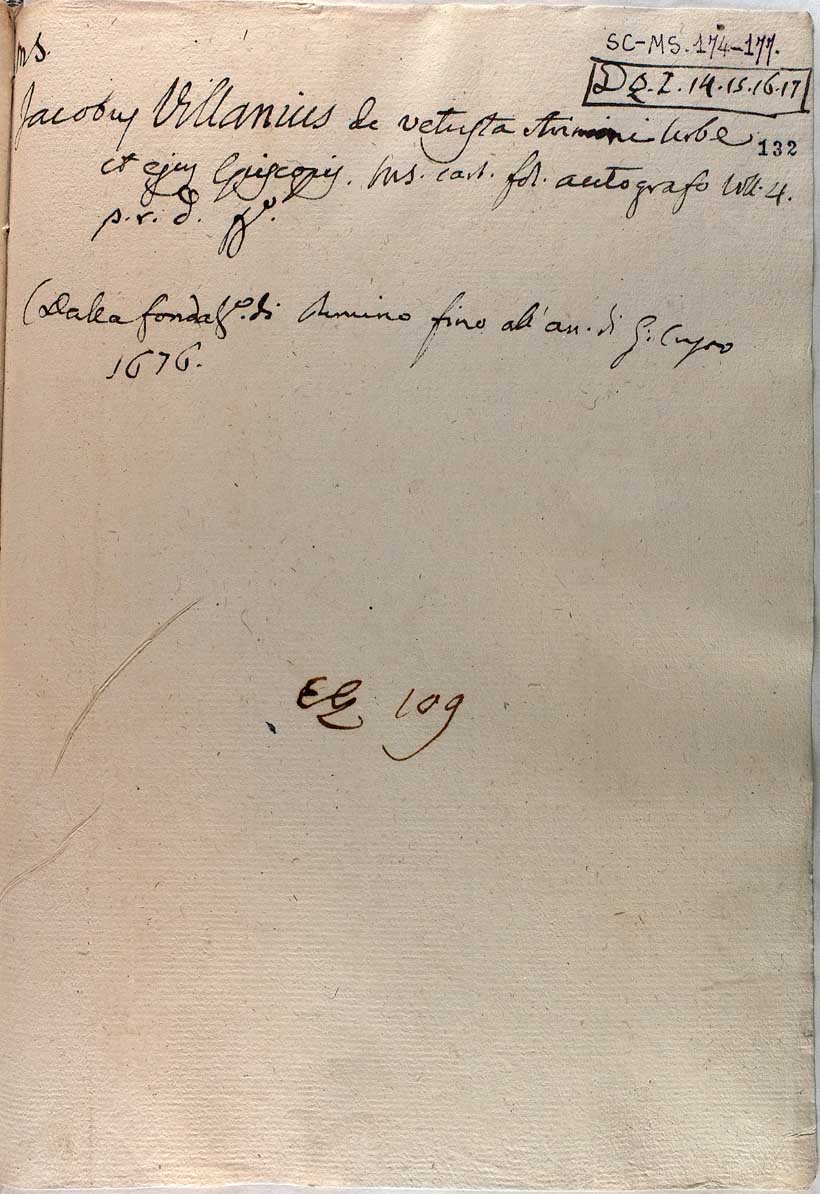 SC-MS. 174-177.
ms.
D Q. I. 14. 15. 16. 17
Jacobus Villanius de vetusta Arimini Urbe
132
et ejus Episcopis. Ms. cart. fol. autografo voll. 4.
p. r. d.
(Dalla fondaz.e di Arimino fino all' an. di G. Cristo
1676.
EG 109